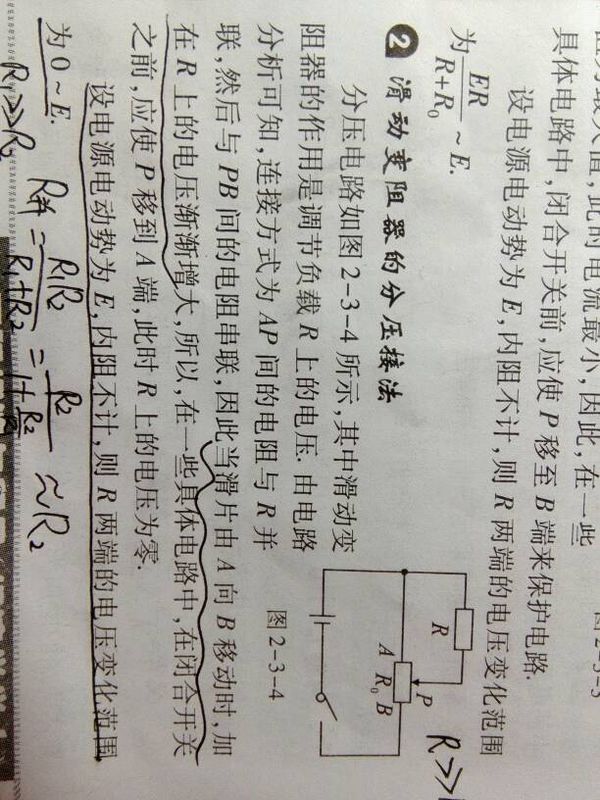 值,此时电流最小,因此,在一些
具体电路中,闭合开关前,应使 P 移至 B 端来保护电路.
设电源电动势为 E,内阻不计,则 R 两端的电压变化范围
为 ER/(R+R₀) ~ E.
2 滑动变阻器的分压接法
分压电路如图 2-3-4 所示,其中滑动变
阻器的作用是调节负载 R 上的电压. 由电路
分析可知,连接方式为 AP 间的电阻与 R 并
联,然后与 PB 间的电阻串联,因此当滑片由 A 向 B 移动时,加
在 R 上的电压渐渐增大,所以,在一些具体电路中,在闭合开关
之前,应使 P 移到 A 端,此时 R 上的电压为零.
设电源电动势为 E,内阻不计,则 R 两端的电压变化范围
为 0 ~ E.
R
P
A R₀ B
图 2-3-4
R>>
R₁>>R₂
R并 = R₁R₂/(R₁+R₂) = R₂/(1+R₂/R₁) ≈R₂